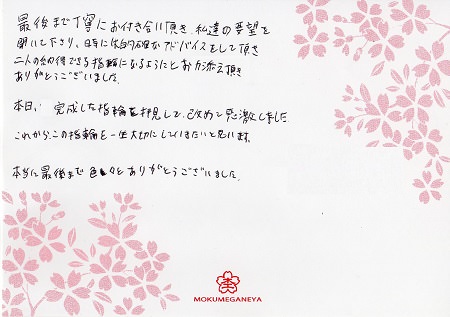 最後まで丁寧にお付き合い頂き、私達の要望を
聞いて下さり、時には的確なアドバイスをして頂き
二人の納得できる指輪になるようにとお力添え頂き
ありがとうございました。
本日、完成した指輪を拝見して、改めて感激しました。
これから、この指輪を一生大切にしていきたいと思います。
本当に最後まで色々とありがとうございました。
MOKUMEGANEYA